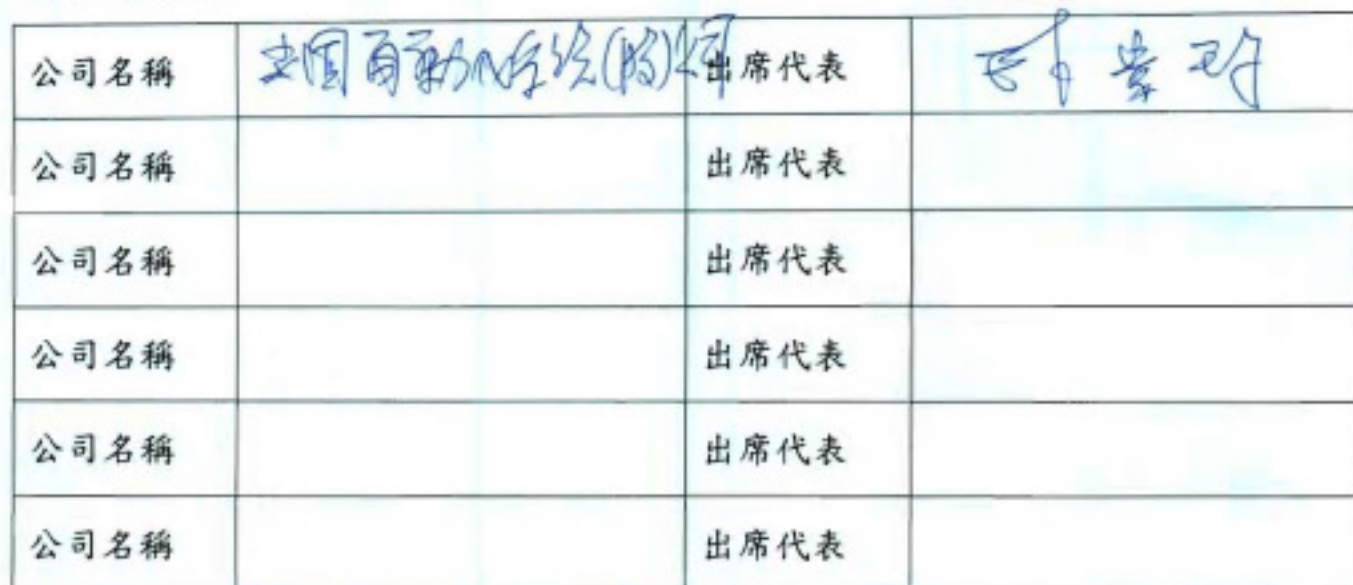 公司名稱 出席代表
公司名稱 出席代表
公司名稱 出席代表
公司名稱 出席代表
公司名稱 出席代表
公司名稱 出席代表